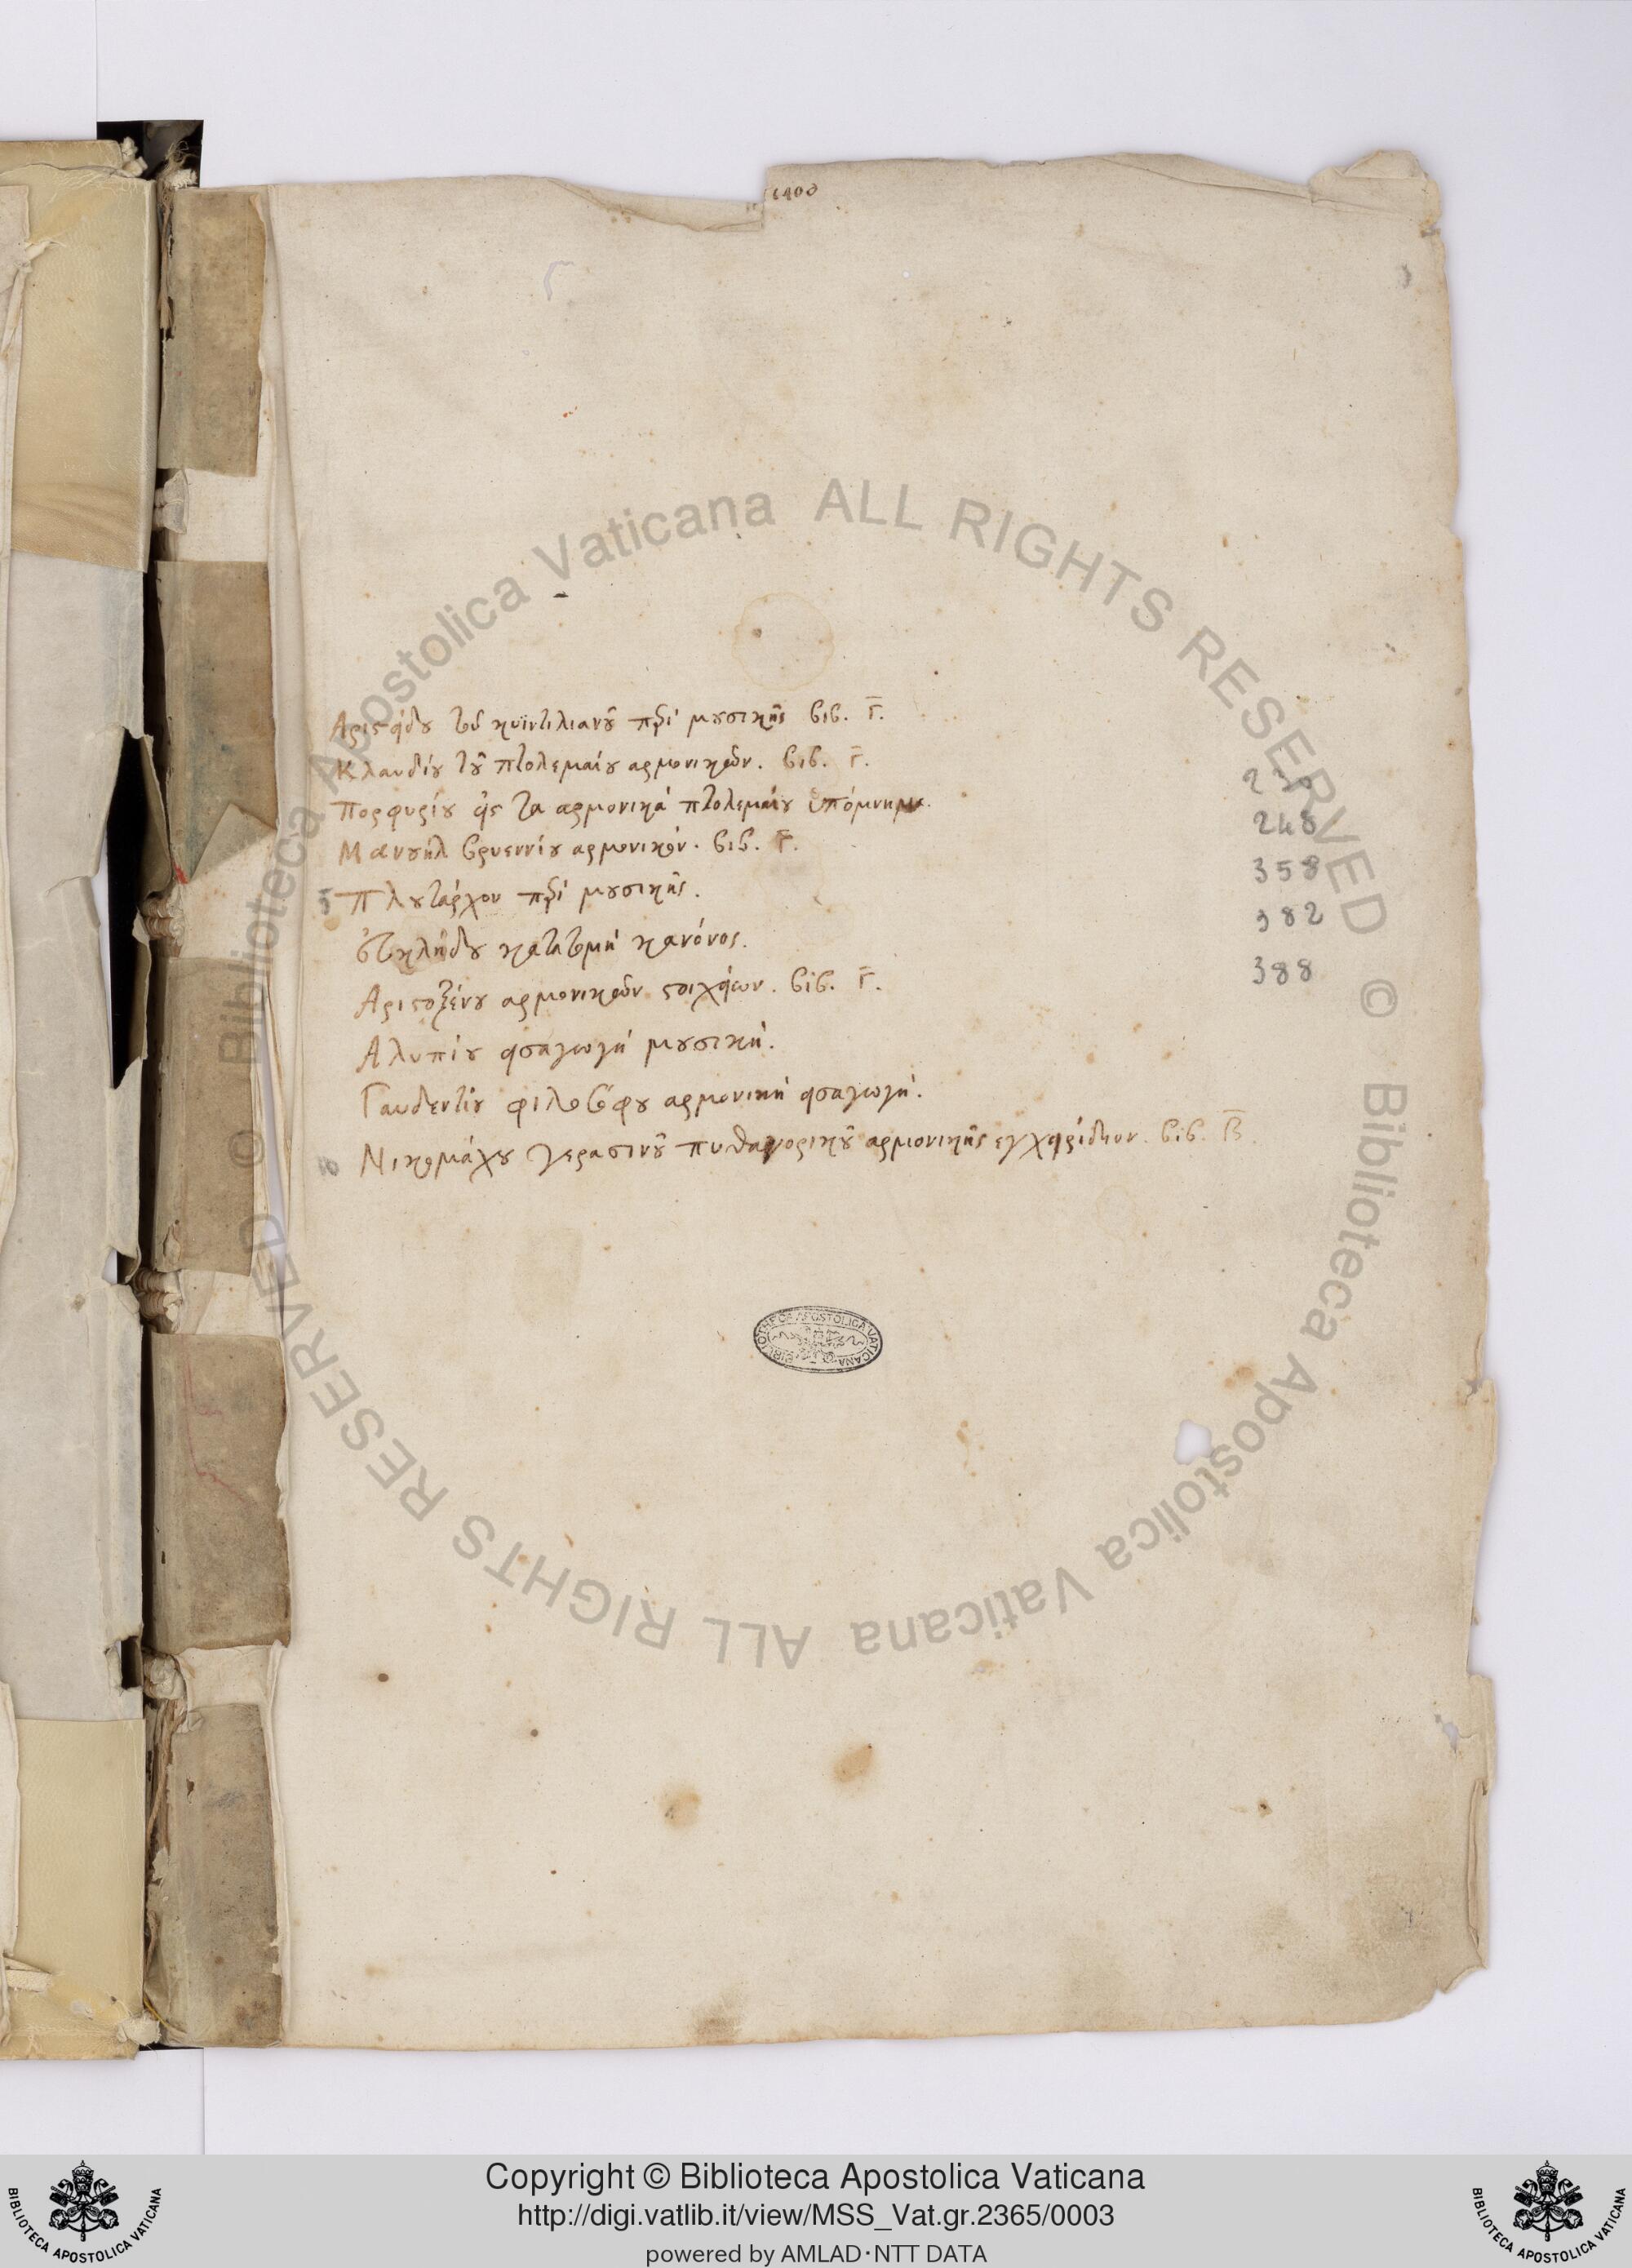 1400
Αριστείδου τοῦ κυϊντιλιανοῦ περὶ μουσικῆς βιβ. Γ̅.
Κλαυδίου τοῦ πτολεμαίου αρμονικῶν. βιβ. Γ̅.
Πορφυρίου εἰς τα αρμονικά πτολεμαίου ὑπόμνημα.
230
Μανουήλ βρυεννίου αρμονικόν. βιβ. Γ̅.
248
5 Πλουτάρχου περὶ μουσικῆς.
358
Εὐκλείδου κατατομή κανόνος.
382
Αριστοξένου αρμονικῶν στοιχείων. βιβ. Γ̅.
388
Αλυπίου εισαγωγή μουσική.
Γαυδεντίου φιλοσόφου αρμονική εισαγωγή.
10 Νικομάχου γερασινοῦ πυθαγορικοῦ αρμονικῆς εγχειρίδιον. βιβ. Β̅.
BIBLIOTHECA APOSTOLICA VATICANA
© Biblioteca Apostolica Vaticana ALL RIGHTS RESERVED
© Biblioteca Apostolica Vaticana ALL RIGHTS RESERVED
BIBLIOTECA APOSTOLICA VATICANA
Copyright © Biblioteca Apostolica Vaticana
http://digi.vatlib.it/view/MSS_Vat.gr.2365/0003
powered by AMLAD･NTT DATA
BIBLIOTECA APOSTOLICA VATICANA